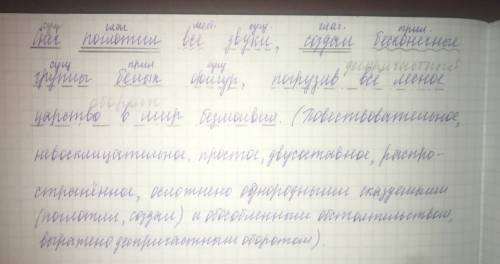 сущ. глаг. мест. сущ. глаг. прил.
Снег поглотил все звуки, создал бесконечные
сущ прил сущ деепричастный
группы белых фигур, погрузив всё лесное
оборот
царство в мир безмолвия. (Повествовательное,
невосклицательное, простое, двусоставное, распро-
странённое, осложнено однородными сказуемыми
(поглотил, создал) и обособленным обстоятельством,
выражено деепричастным оборотом).